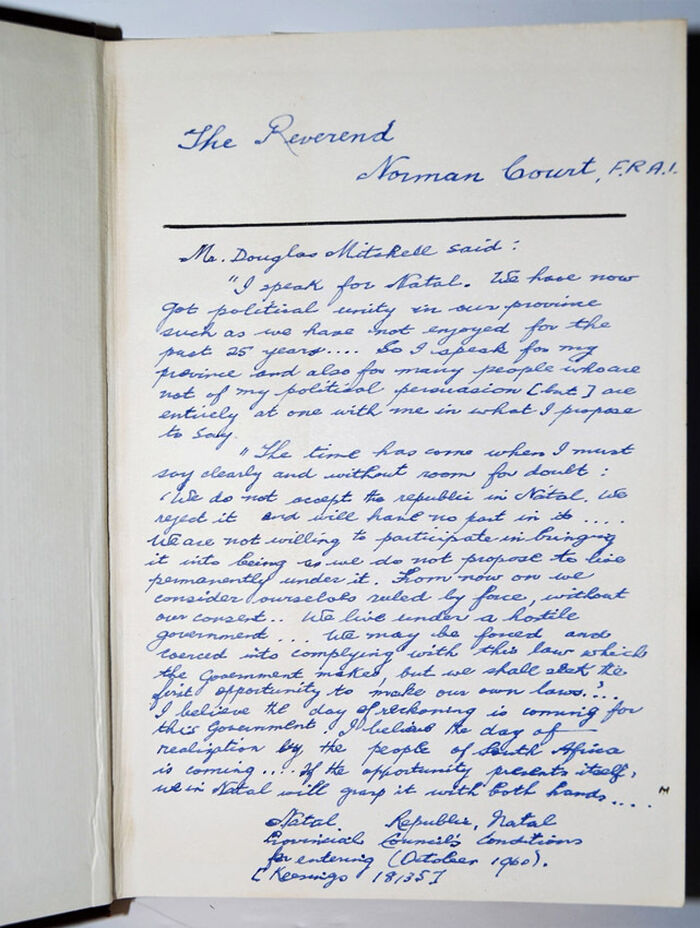 The Reverend
Norman Court, F.R.A.I.
Mr. Douglas Mitchell said:
"I speak for Natal. We have now
got political unity in our province
such as we have not enjoyed for the
past 25 years.... So I speak for my
province and also for many people who are
not of my political persuasion [but] are
entirely at one with me in what I propose
to say.
"The time has come when I must
say clearly and without room for doubt:
'We do not accept the republic in Natal. We
reject it and will have no part in it ....
We are not willing to participate in bringing
it into being as we do not propose to live
permanently under it. From now on we
consider ourselves ruled by force, without
our consent.. We live under a hostile
government ... We may be forced and
coerced into complying with this law which
the Government makes, but we shall seek the
first opportunity to make our own laws....
I believe the day of reckoning is coming for
this Government. I believe the day of
realization by the people of South Africa
is coming.... If the opportunity presents itself,
we in Natal will grasp it with both hands....
Natal Republic, Natal
Provincial Council's conditions
for entering (October 1960).
[Keesings 18135]